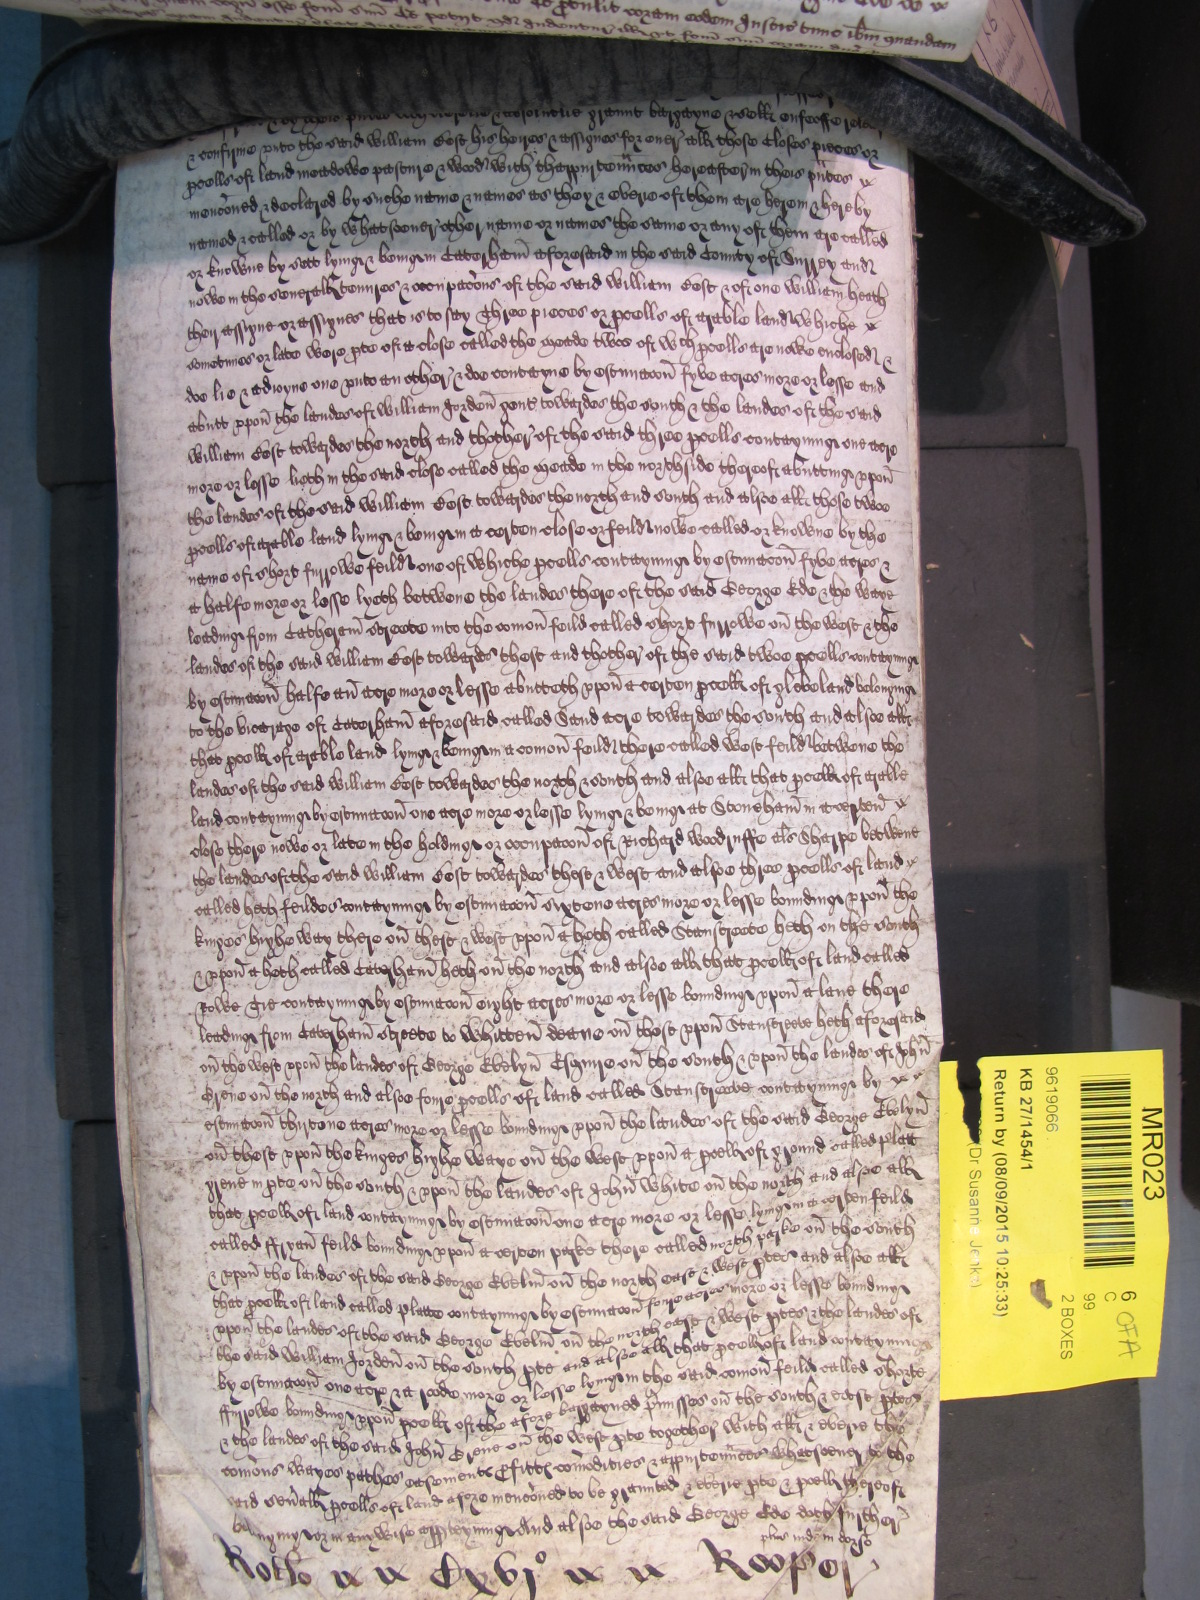 & confirme unto the said William Best his heires & assignes for ever all those closes pieces or
pcells of land meadowe pasture & wood with thappurtenn̄ces hereafter in theis pn̄tes
menc̄oned & declared by suche name & names as they & everie of them are herein & hereby
named & called or by whatsoever other name or names the same or any of them are called
or knowne by sett lyinge & beinge in Caterham̄ aforesaid in the said County of Surrey and
nowe in the severall tenures & occupac̄ons of the said William Best & of one William Heath
their assigne or assignes that is to say Three pieces or pcells of arable land whiche
sometimes or late were pte of a close called the Meade twoe of wch pcells are nowe enclosed &
doe lie & adioyne one unto an other & doe contayne by estimac̄on fyve acres more or lesse and
abutt uppon the landes of William Jorden gent towardes the south & the landes of the said
William Best towardes the north and thother of the said three pcells contayninge one acre
more or lesse lieth in the said close called the Meade in the northside thereof abuttinge uppon
the landes of the said William Best towardes the north and south and alsoe all those twoe
pcells of arable land lyinge & beinge in a certen close or feild nowe called or knowne by the
name of Short furrowe feild one of whiche pcells contayninge by estimac̄on fyve acres &
a halfe more or lesse lyeth betwene the landes there of the said George Ede & the waye
leadinge from Catheram̄ streete into the com̄on feild called Short furrowe on the west & the
landes of the said William Best towardes thest and thother of the said twoe pcells contayninge
by estimac̄on halfe an acre more or lesse abutteth uppon a certen pcell of glebe land belonginge
to the vicarage of Caterham̄ aforesaid called Sand acre towardes the south and alsoe all
that pcell of arable land lyinge & beinge in a com̄on feild there called West feild betwene the
landes of the said William Best towardes the north & south and alsoe all that pcell of arable
land contayninge by estimac̄on one acre more or lesse lyinge & beinge at Stoneham̄ in a certen
close there nowe or late in the holdinge or occupac̄on of Richard Woodruffe als Sharpe betwene
the landes of the said William Best towardes thest & west and alsoe three pcells of land
called heth feildes contayninge by estimac̄on sixtene acres more or lesse boundinge uppon the
kinges highe way there on thest & west uppon a heth called Stanstreete heth on the south
& uppon a heth called Caterham̄ heth on the north and alsoe all that pcell of land called
Rowe contayninge by estimac̄on eight acres more or lesse boundinge uppon a lane there
leadinge from Caterham̄ streete to Whitten deane on thest uppon Stanstreete heth aforesaid
on the west uppon the landes of George Evelyn Esquire on the south & uppon the landes of John
Grene on the north and alsoe foure pcells of land called Stanstreete contayninge by
estimac̄on thirtene acres more or lesse boundinge uppon the landes of the said George Evelyn
on thest uppon the kinges highe waye on the west uppon a pcell of ground called platt
grene in pte on the south & uppon the landes of John White on the north and alsoe all
that pcell of land contayninge by estimac̄on one acre more or lesse lyinge in a certen feild
called ffryan feild boundinge uppon a certen parke there called north parke on the south
& uppon the landes of the said George Evelin on the north east & west ptes and alsoe all
that pcell of land called platte contayninge by estimac̄on foure acres more or lesse boundinge
uppon the landes of the said George Evelin on the north east & west ptes & the landes of
the said William Jorden on the south pte and alsoe all that pcell of land contayninge
by estimac̄on one acre & a roode more or lesse lyinge in the said com̄on feild called Shorte
ffurrowe boundinge uppon pcell of the afore bargayned p̄misses on the south & east ptes
& the landes of the said John Grene on the west pte together with all & everie the
com̄ons wayes pathes easements pfitts com̄odities & appurtenn̄ces whatsoever to the
said sev̄all pcells of land afore menc̄oned to be graunted & everie pte & pcell thereof
belonginge or in any wise apptayninge And alsoe the said George Ede doth further
plus inde in dorso
Rotlo CXVIo Rooper
MR023
9619066
KB 27/1454/1
Return by (08/09/2015 10:25:33)
(Dr Susanne Jenks)
6
C
99
2 BOXES